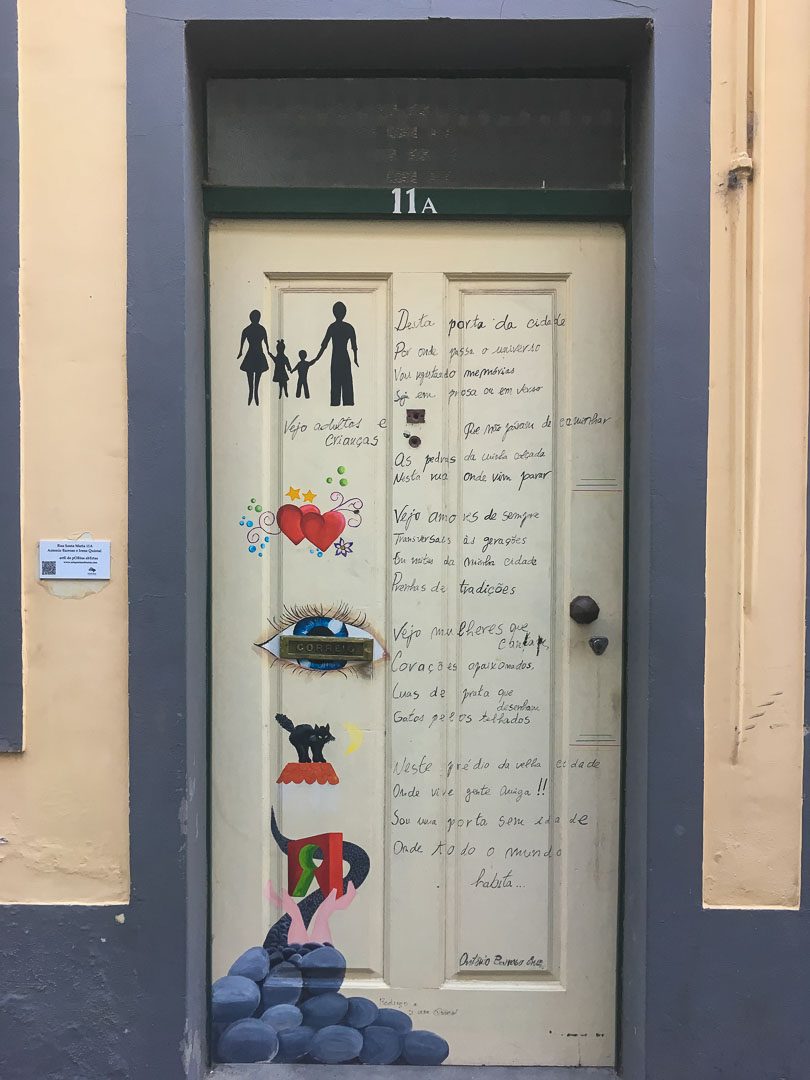 11A
Desta porta da cidade
Por onde passa o universo
Vou repartindo memórias
Seja em prosa ou em verso
Vejo adultos e
crianças
Que não param de caminhar
As pedras da minha calçada
Nesta rua onde vim parar
Vejo amores de sempre
Transversais às gerações
Em noites da minha cidade
Prenhas de tradições
CORREIO
Vejo mulheres que
cantam,
Corações apaixonados,
Luas de prata que
desenham
Gatos pelos telhados
Neste prédio da velha cidade
Onde vive gente amiga!!
Sou uma porta sem idade
Onde todo o mundo
habita...
António Barroso Cruz
Rua Santa Maria 11A
António Barroso e Irene Quintal
arte de pORtas abErtas